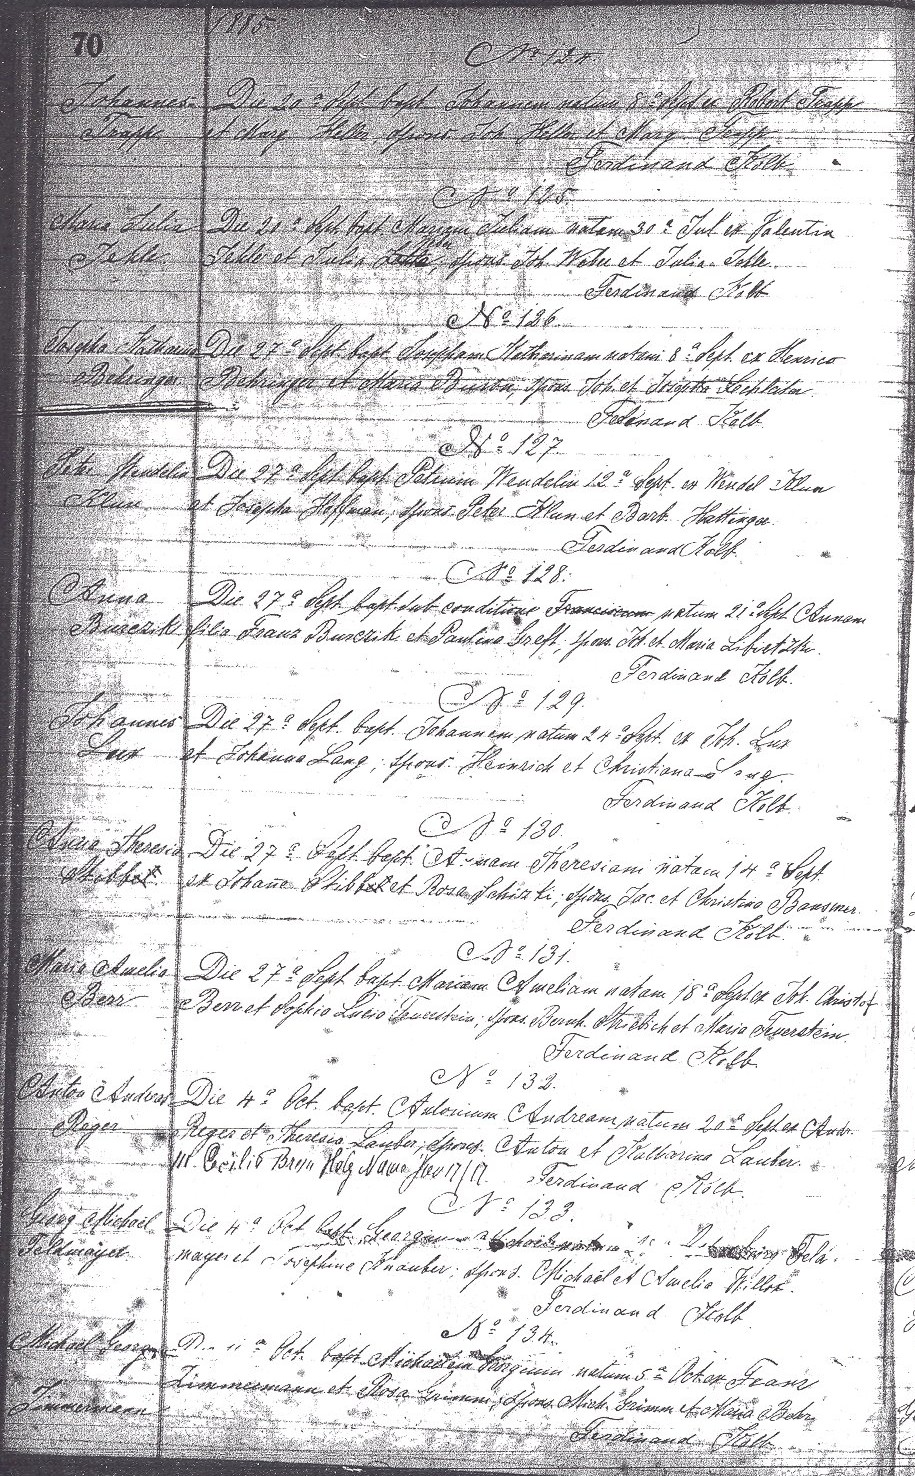 70 1885
No 124.
Johannes Die 20a Sept. bapt. Johannem natum 8a Sept ex Robert Trapp
Trapp et Marg Heller, spons. Joh Heller et Marg Trapp
Ferdinand Kolb.
No 125.
Maria Julia Die 20a Sept bapt. Mariam Juliam natam 30a Jul ex Valentin
Jehle Jehle et Julia, spons. Joh Weber et Julia Jehle.
Ferdinand Kolb
No 126.
Josepha Katharina Die 27a Sept bapt. Josepham Katharinam natam 8a Sept. ex Henrico
Behringer Behringer et Maria, spons. Joh. et Josepha
Ferdinand Kolb.
No 127
Peter Wendelin Die 27a Sept bapt. Petrum Wendelin 12a Sept. ex Wendel Klun
Klun et Josepha Hoffman, spons. Peter Klun et Barb. Hattinger
Ferdinand Kolb.
No 128.
Anna Die 27a Sept bapt sub conditione Franciscum natum 21a Sept Annam
Burczik filia Franz Burczik et Paulina Greft, spons. Joh. et Maria
Ferdinand Kolb.
No 129.
Johannes Die 27a Sept. bapt. Johannem natum 24a Sept. ex Joh. Lux
Lux et Johanna Lang; spons. Heinrich et Christiana Lang
Ferdinand Kolb.
No 130.
Anna Theresia Die 27a Sept. bapt. Annam Theresiam natam 14a Sept.
Stibbel ex Johane Stibbel et Rosa; spons. Jac. et Christina Bansmer.
Ferdinand Kolb.
No 131.
Maria Amelia Die 27a Sept bapt. Mariam Ameliam natam 18a Sept ex Joh. Christof
Berr Berr et Sophia Lucia Feuerstein; spons. Bernh. Striebich et Maria Feuerstein.
Ferdinand Kolb
No 132.
Anton Andreas Die 4a Oct. bapt. Antonium Andream natum 20a Sept ex Andr.
Reger Reger et Theresia Lauber; spons. Anton et Katharina Lauber.
M. Cecilia Holy Name Nov 17/17. Ferdinand Kolb.
No 133.
Georg Michael Die 4a Oct bapt. Georgium natum Feld-
Feldmayer mayer et Josephine Knauber; spons. Michael et Amelia Willet.
Ferdinand Kolb
No 134.
Michael Georg Oct. bapt. Michaelem Georgium natum 5a Oct ex Franz
Zimmermann Zimmermann et Rosa Grimm; spons. Mich. Grimm et Maria Behr
Ferdinand Kolb